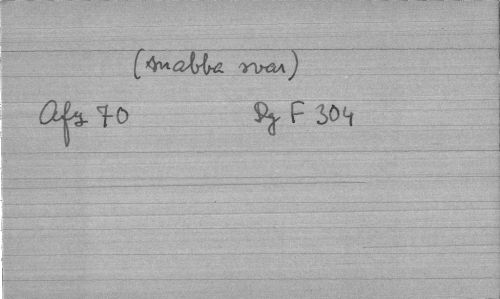 (snabba svar)
Afz 70 Dg F 304